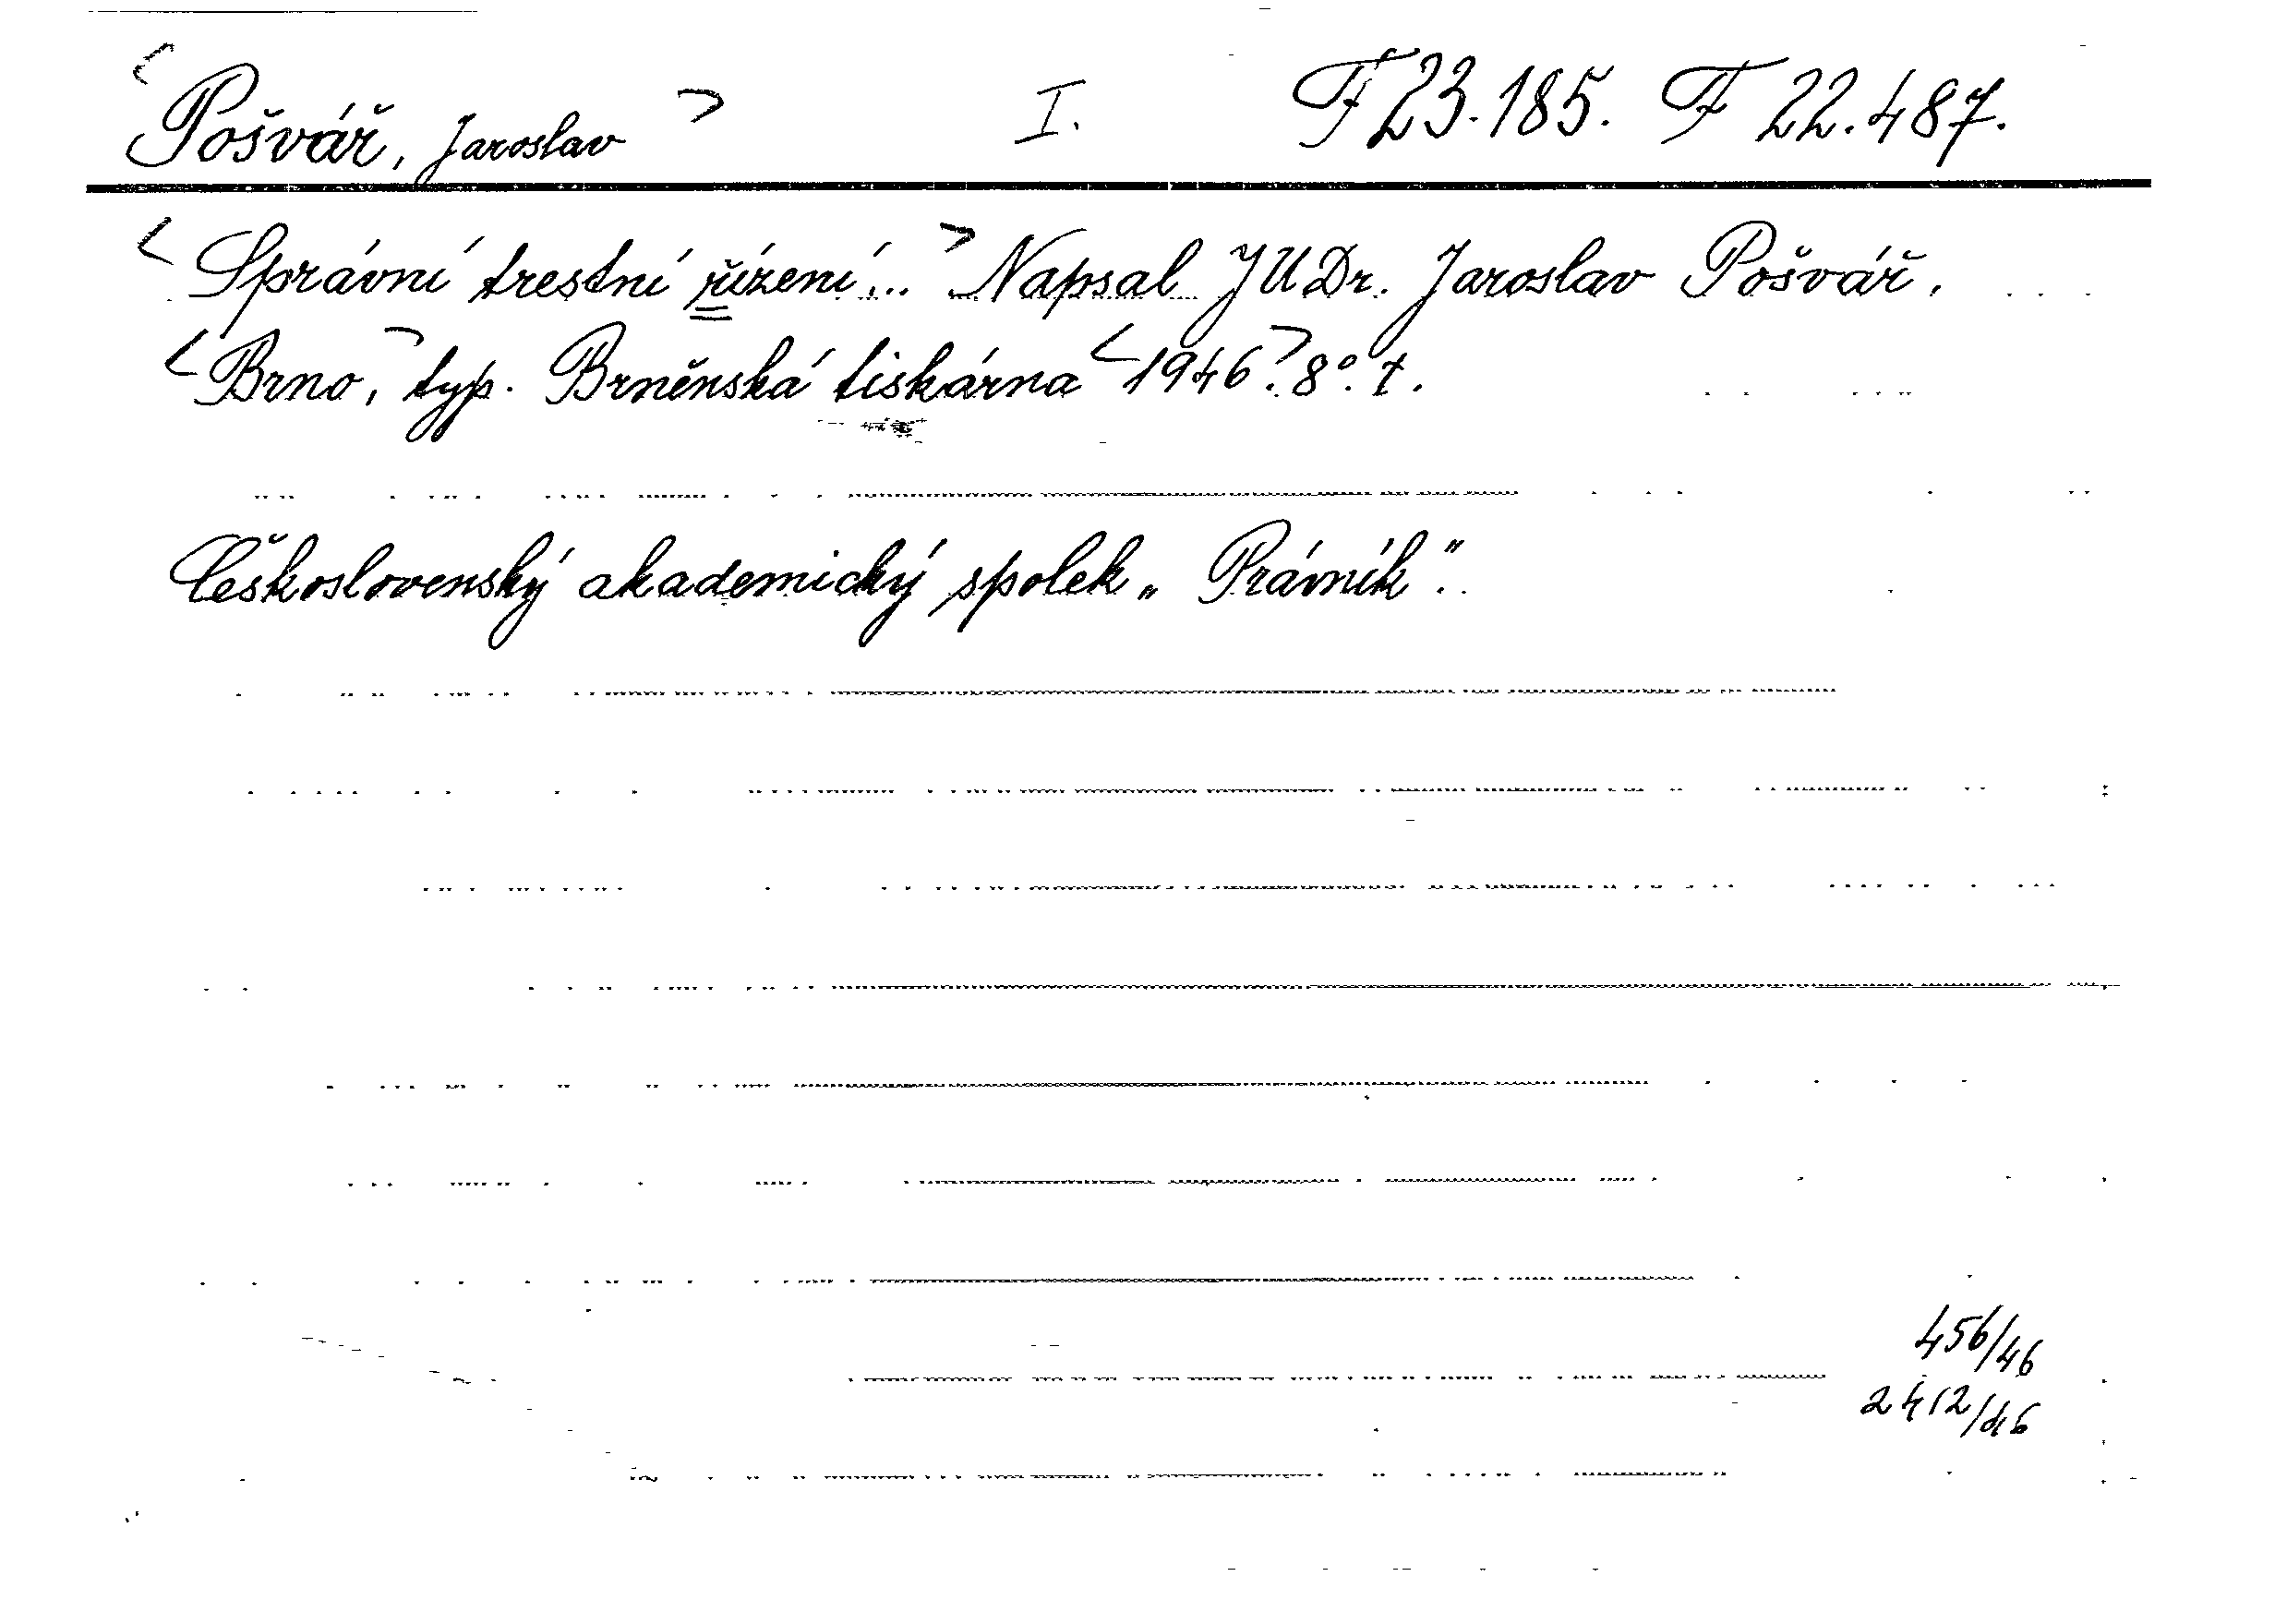 <Pošvář, Jaroslav> I. F 23.185. F 22.487.
<Správní trestní řízení...> Napsal JUDr. Jaroslav Pošvář.
<Brno,> typ. Brněnská tiskárna <1946>. 8°. t.
Československý akademický spolek „Právník".
456/46
2412/46